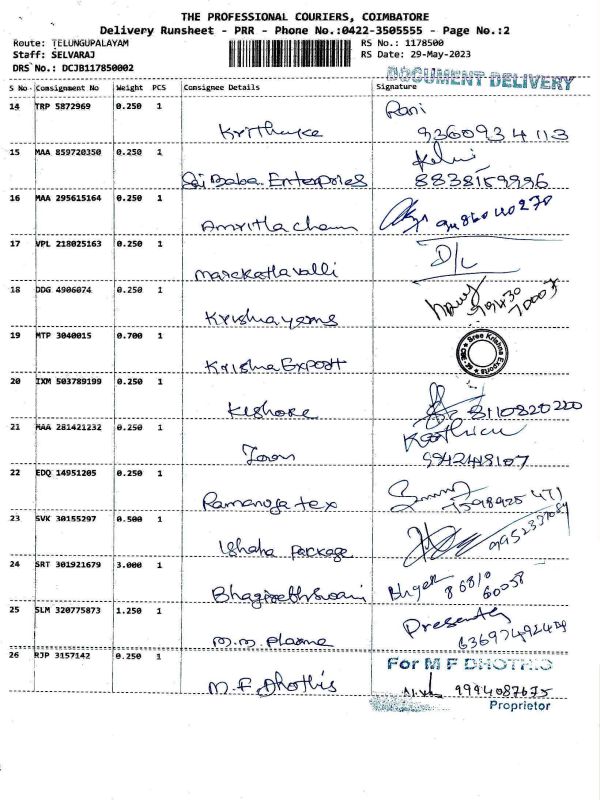 THE PROFESSIONAL COURIERS, COIMBATORE
Delivery Runsheet - PRR - Phone No.:0422-3505555 - Page No.:2
Route: TELUNGUPALAYAM RS No.: 1178500
Staff: SELVARAJ RS Date: 29-May-2023
DRS No.: DCJB117850002
DOCUMENT DELIVERY
S No Consignment No Weight PCS Consignee Details Signature
14 TRP 5872969 0.250 1 Rani
9360934113
15 MAA 859720350 0.250 1
Sai Baba Enterprises 8838159996
16 MAA 295615164 0.250 1
Amritha cham 9486040270
17 VPL 218025163 0.250 1 D/L
Marckathavalli
18 DDG 4906074 0.250 1
Krishna yarns
19 MTP 3040015 0.700 1 Sree Krishna Exports
Krishna Export
20 IXM 503789199 0.250 1
Kishore 8110820220
21 MAA 281421232 0.250 1 Karthick
9942448107
22 EDQ 14951205 0.250 1
Ramanuja tex 7598925471
23 SVK 30155297 0.500 1
Ishana package
24 SRT 301921679 3.000 1 86810
60058
25 SLM 320775873 1.250 1
M.M. Plasma
26 RJP 3157142 0.250 1 For M F DHOTHIS
M. F Dhothis 9994087675
Proprietor